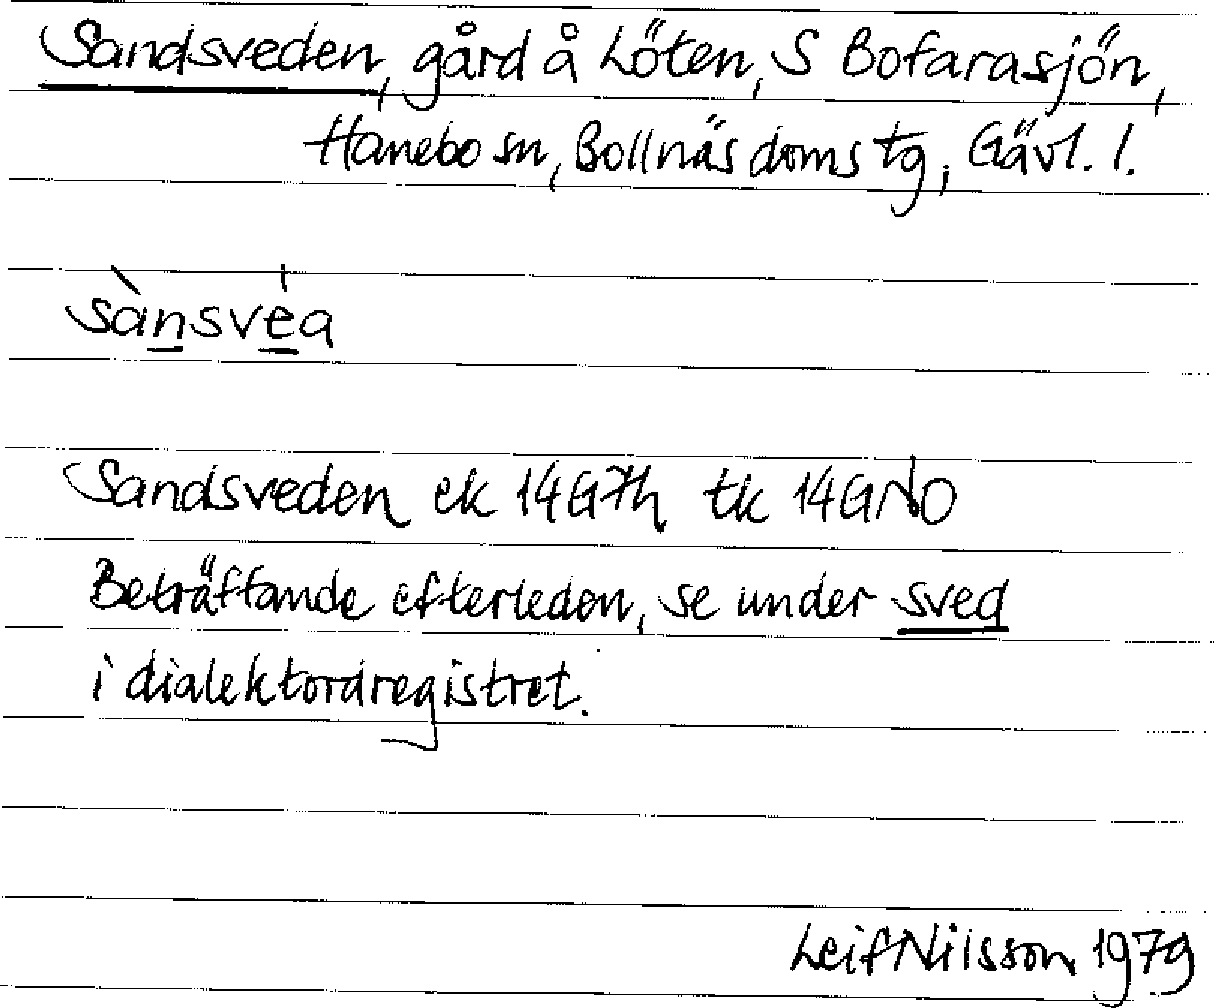 Sandsveden, gård å Löten, S Bofarasjön,
Hanebo sn, Bollnäs doms tg, Gävl. l.
sànsvèa
Sandsveden ek 14G7h tk 14GNO
Beträffande efterleden, se under sved
i dialektordregistret.
Leif Nilsson 1979